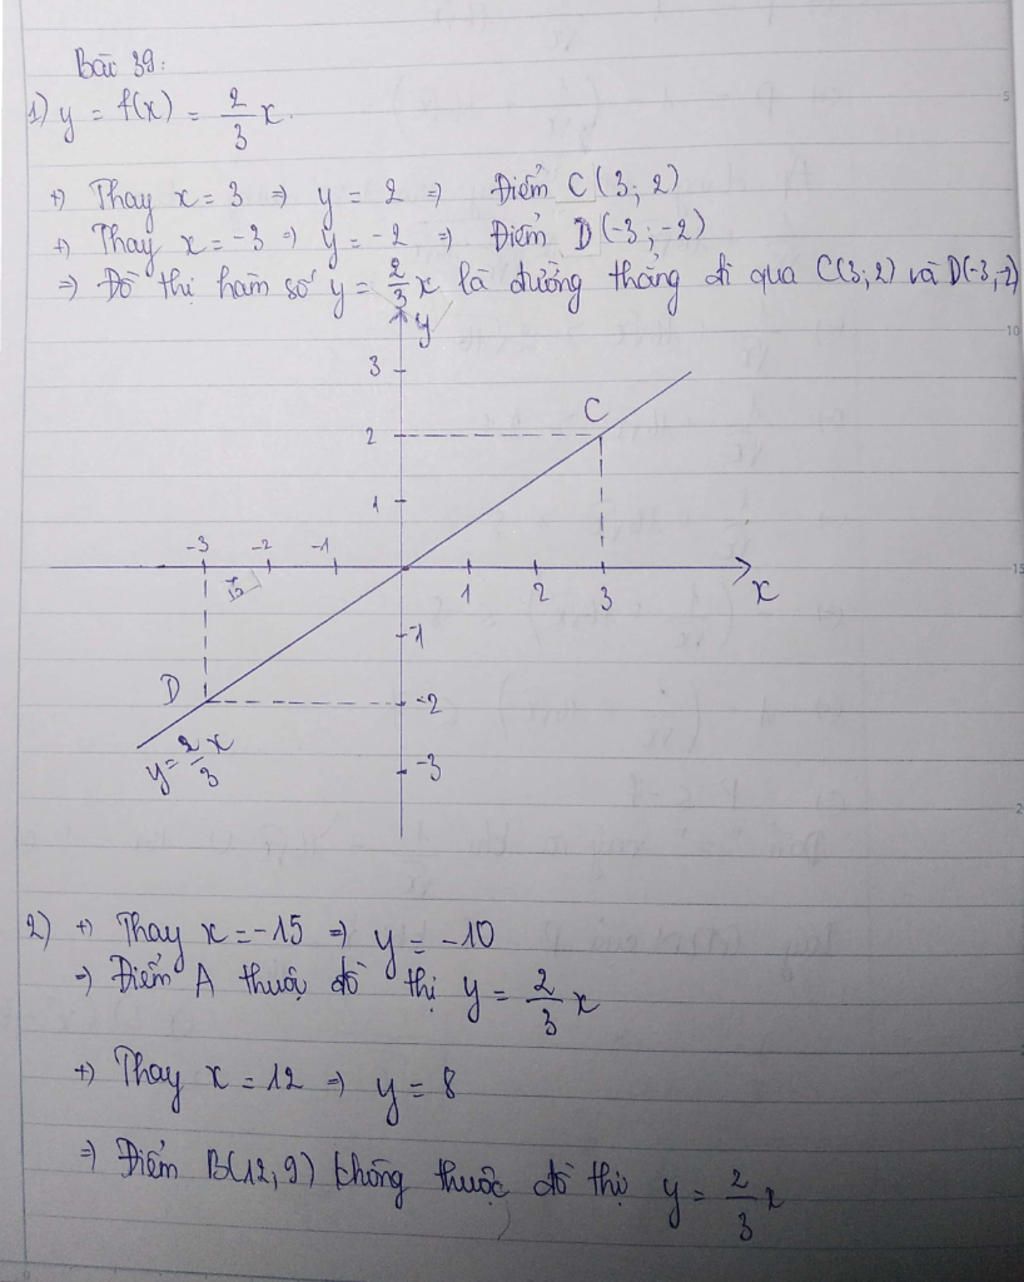 Bài 39:
1) y = f(x) = 2/3 x.
+) Thay x = 3 => y = 2 => Điểm C(3; 2)
+) Thay x = -3 => y = -2 => Điểm D(-3; -2)
=> Đồ thị hàm số y = 2/3 x là đường thẳng đi qua C(3; 2) và D(-3; -2)
y
3
C
2
1
-3 -2 -1
1 2 3 x
-1
D
-2
y = 2/3 x
-3
2) +) Thay x = -15 => y = -10
=> Điểm A thuộc đồ thị y = 2/3 x
+) Thay x = 12 => y = 8
=> Điểm B(12; 9) không thuộc đồ thị y = 2/3 x
5
10
15
2